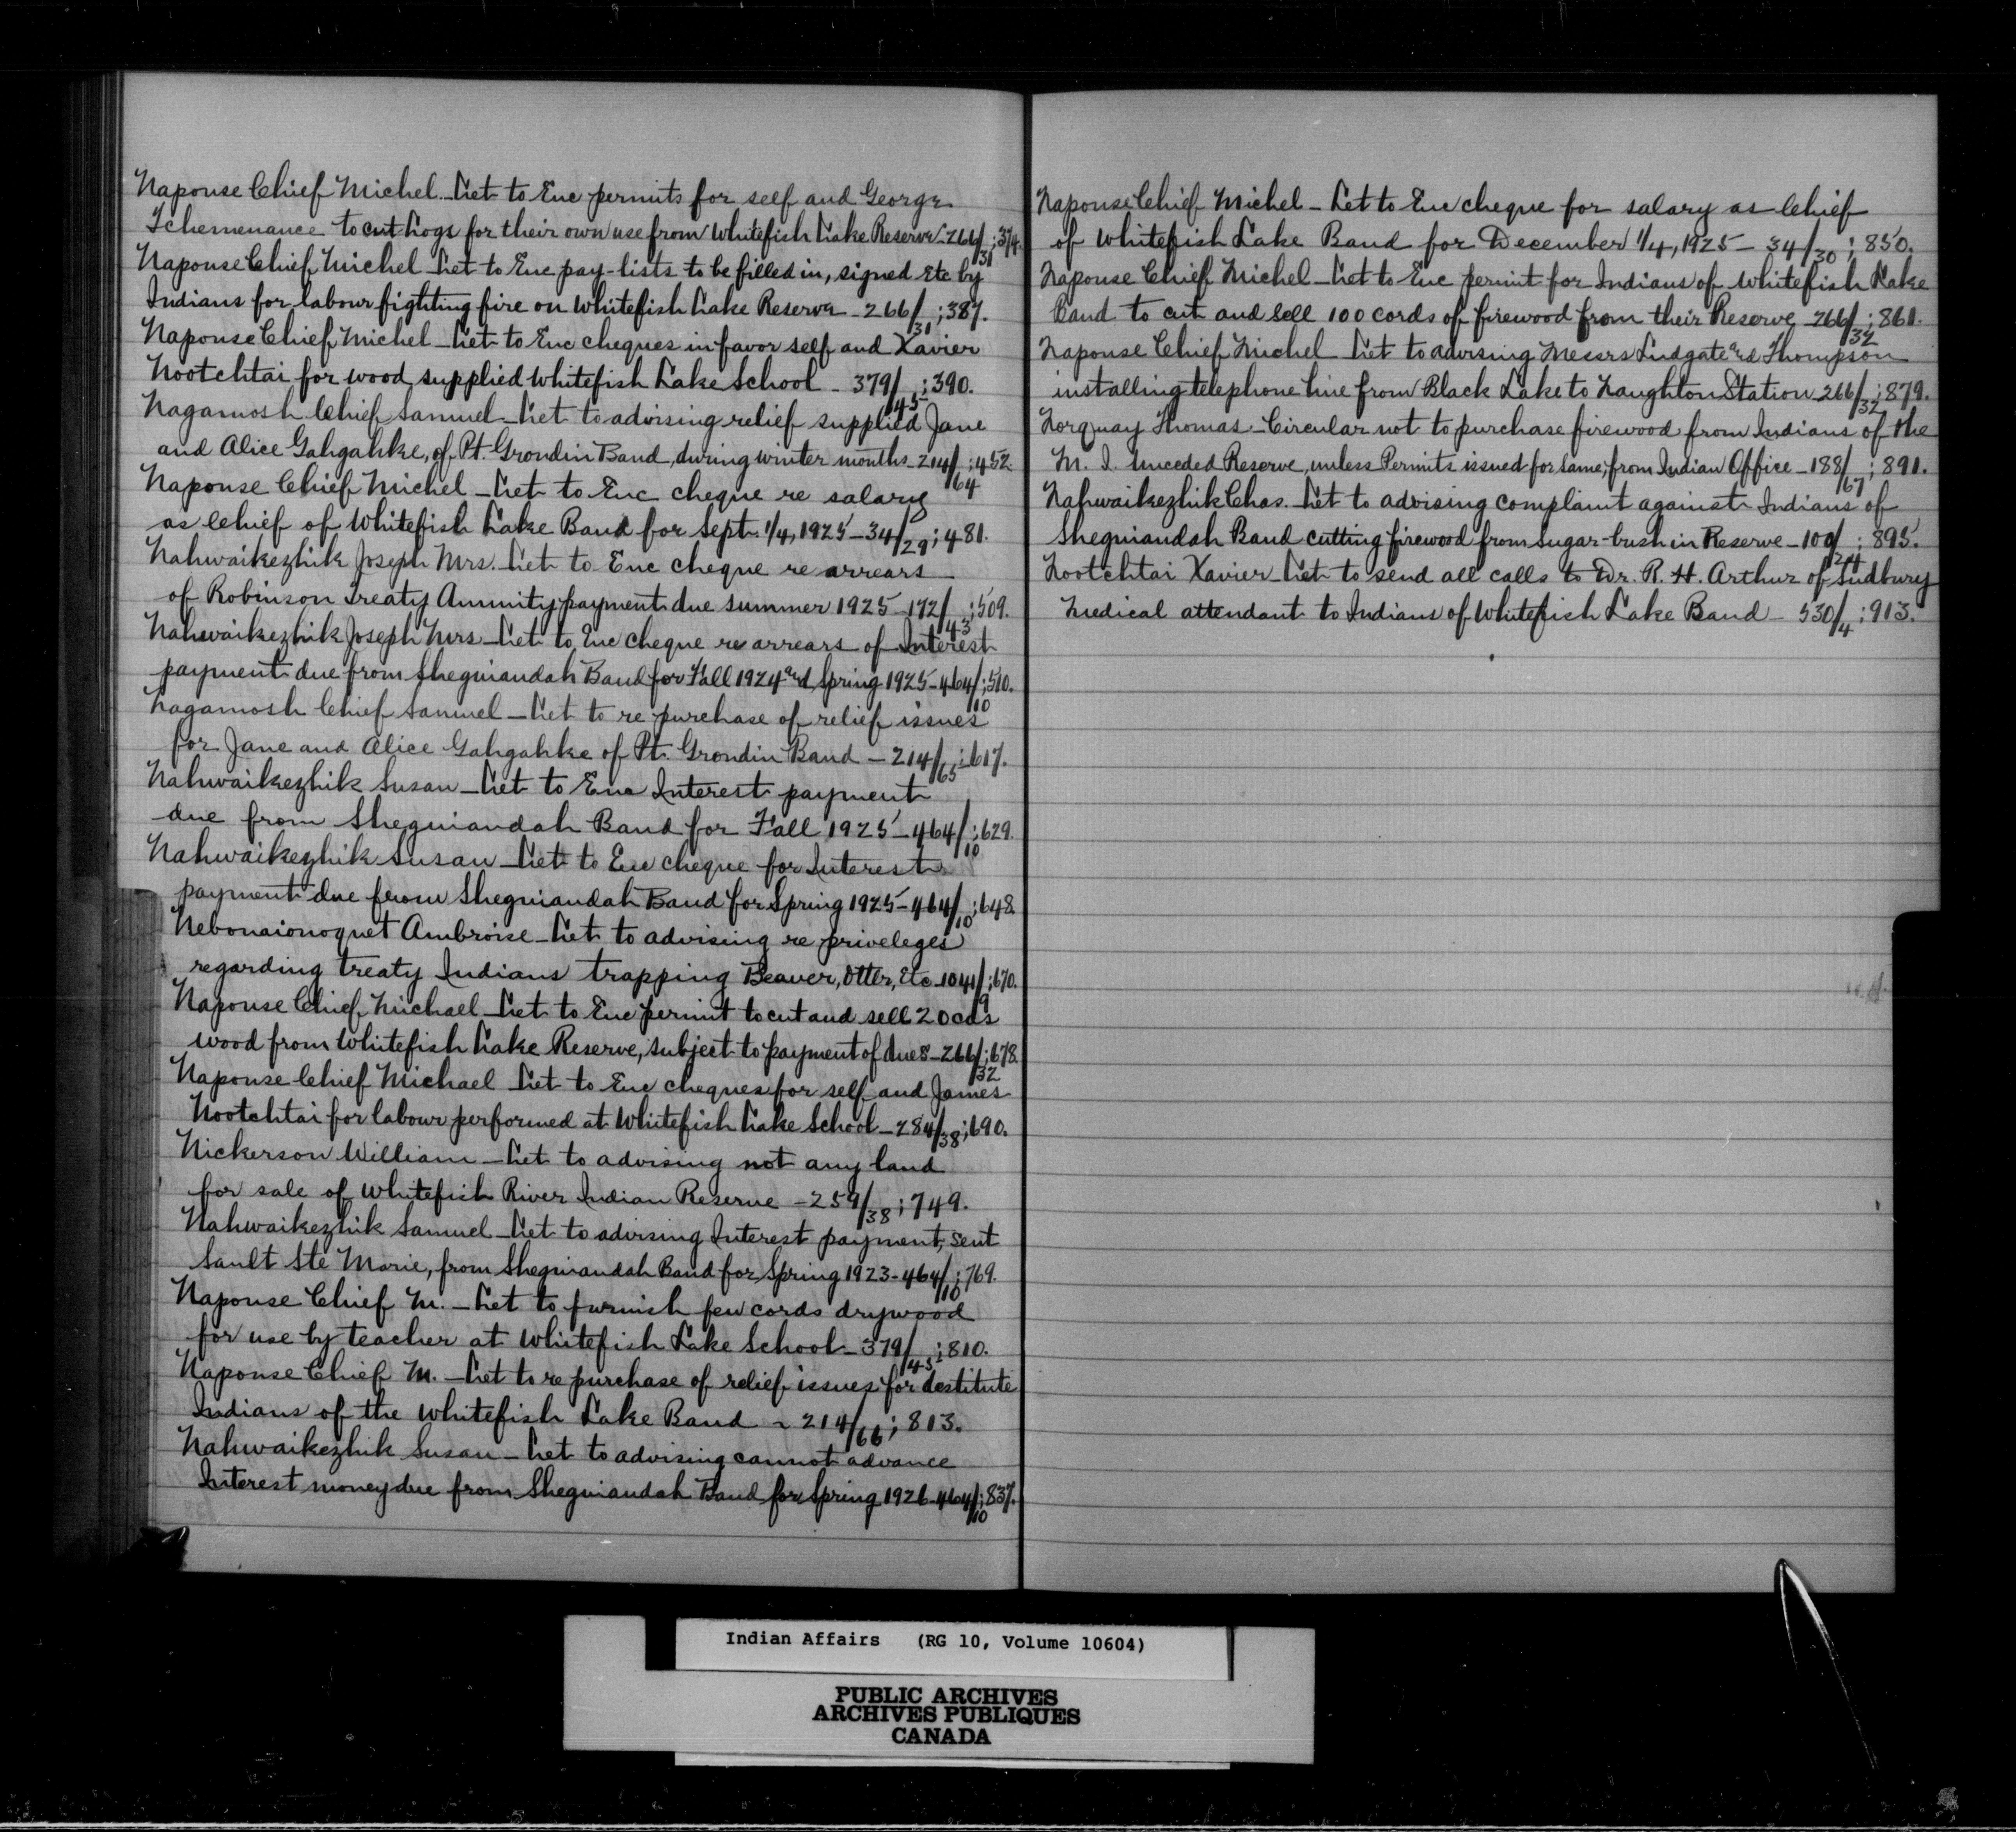 Naponse Chief Michel - Let to Enc permits for self and George
Ichemenance to cut Logs for their own use from Whitefish Lake Reserve - 266/31; 374.
Naponse Chief Michel - Let to Enc pay-lists to be filled in, signed Etc by
Indians for labour fighting fire on Whitefish Lake Reserve - 266/31; 387.
Naponse Chief Michel - Let to Enc cheques in favor self and Xavier
Nootchtai for wood supplied Whitefish Lake School - 379/45; 390.
Nagamosh Chief Samuel - Let to advising relief supplied Jane
and Alice Gahgahke, of Pt. Grondin Band, during winter months - 214/64; 452.
Naponse Chief Michel - Let to Enc cheque re salary
as Chief of Whitefish Lake Band for Sept. 1/4, 1925 - 34/29; 481.
Nahwaikezhik Joseph Mrs. - Let to Enc cheque re arrears
of Robinson Treaty Annuity payment due summer 1925 - 172/43; 509.
Nahwaikezhik Joseph Mrs - Let to Enc cheque re arrears of Interest
payment due from Sheguiandah Band for Fall 1924 and Spring 1925 - 464/10; 510.
Nagamosh Chief Samuel - Let to re purchase of relief issues
for Jane and Alice Gahgahke of Pt. Grondin Band - 214/65; 617.
Nahwaikezhik Susan - Let to Enc Interest payment
due from Sheguiandah Band for Fall 1925 - 464/10; 629.
Nahwaikezhik Susan - Let to Enc cheque for Interest
payment due from Sheguiandah Band for Spring 1925 - 464/10; 648.
Nebonaionoquet Ambroise - Let to advising re priveleges
regarding treaty Indians trapping Beaver, Otter, Etc - 1041/9; 670.
Naponse Chief Michael - Let to Enc permit to cut and sell 20 cds
wood from Whitefish Lake Reserve, subject to payment of dues - 266/32; 678.
Naponse Chief Michael - Let to Enc cheques for self and James
Nootchtai for labour performed at Whitefish Lake School - 284/38; 690.
Nickerson William - Let to advising not any land
for sale of Whitefish River Indian Reserve - 259/38; 749.
Nahwaikezhik Samuel - Let to advising Interest payment, sent
Sault Ste Marie, from Sheguiandah Band for Spring 1923 - 464/10; 769.
Naponse Chief M. - Let to furnish few cords drywood
for use by teacher at Whitefish Lake School - 379/45; 810.
Naponse Chief M. - Let to re purchase of relief issues for destitute
Indians of the Whitefish Lake Band - 214/66; 813.
Nahwaikezhik Susan - Let to advising cannot advance
Interest money due from Sheguiandah Band for Spring 1926 - 464/10; 837.
Naponse Chief Michel - Let to Enc cheque for salary as Chief
of Whitefish Lake Band for December 1/4, 1925 - 34/30; 850.
Naponse Chief Michel - Let to Enc permit for Indians of Whitefish Lake
Band to cut and sell 100 cords of firewood from their Reserve - 266/32; 861.
Naponse Chief Michel Let to advising Messrs Ludgate and Thompson
installing telephone line from Black Lake to Naughton Station - 266/32; 879.
Norquay Thomas - Circular not to purchase firewood from Indians of the
M. I. Unceded Reserve, unless Permits issued for same, from Indian Office - 188/67; 891.
Nahwaikezhik Chas. - Let to advising complaint against Indians of
Sheguiandah Band cutting firewood from sugar-bush in Reserve - 109/24; 895.
Nootchtai Xavier Let to send all calls to Dr. R. H. Arthur of Sudbury
Medical attendant to Indians of Whitefish Lake Band - 530/4; 913.
Indian Affairs (RG 10, Volume 10604)
PUBLIC ARCHIVES
ARCHIVES PUBLIQUES
CANADA